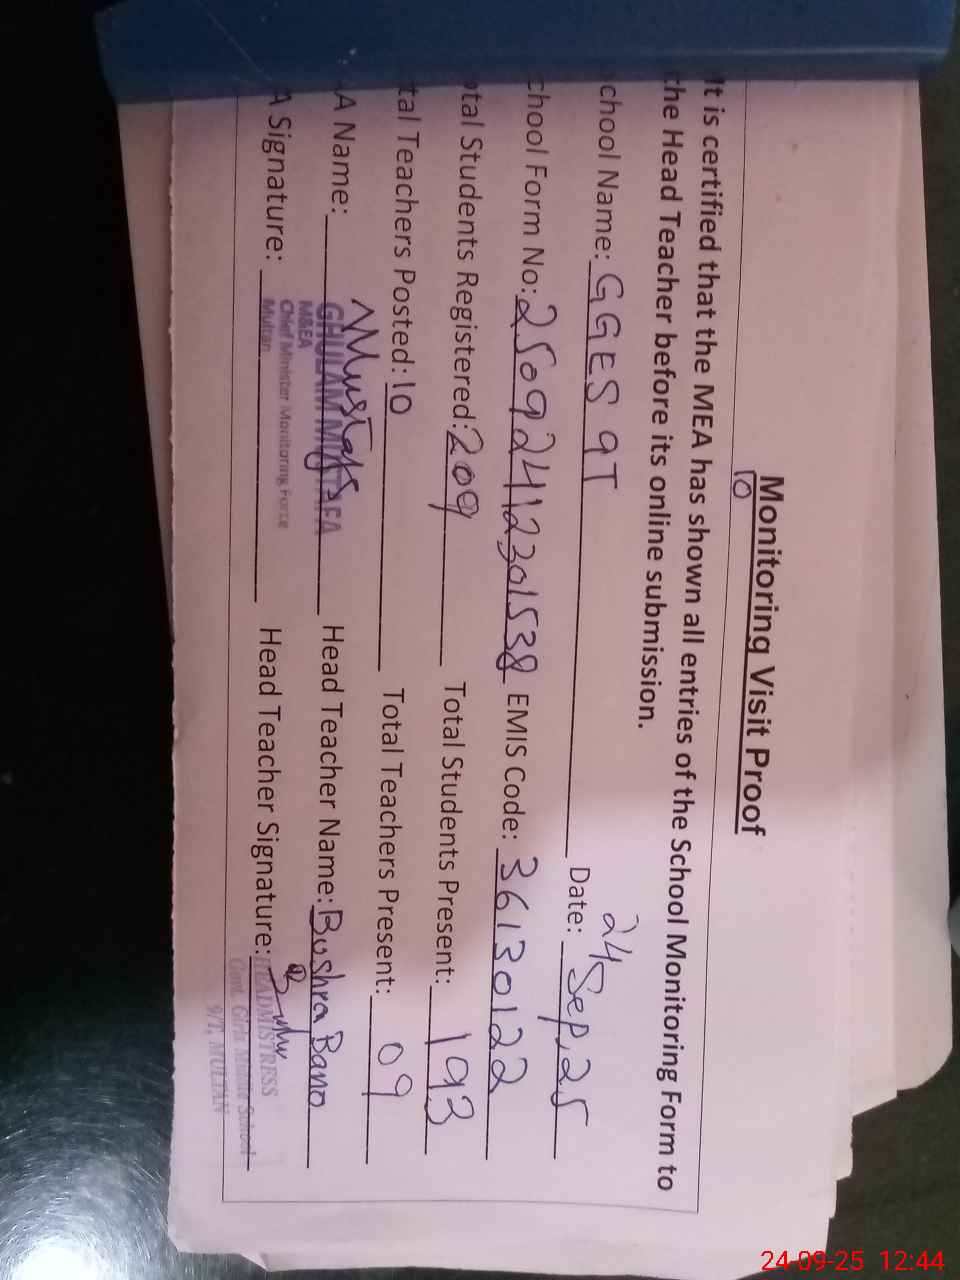 Monitoring Visit Proof
10
It is certified that the MEA has shown all entries of the School Monitoring Form to
the Head Teacher before its online submission.
chool Name: GGES 9T Date: 24 Sep, 25
chool Form No: 25092412301538 EMIS Code: 36130122
otal Students Registered: 209 Total Students Present: 193
tal Teachers Posted: 10 Total Teachers Present: 09
A Name: Mustafa Head Teacher Name: Bushra Bano
GHULAM MUSTAFA
M&EA
Chief Minister Monitoring Force
Multan
A Signature: Head Teacher Signature:
HEADMISTRESS
Govt. Girls Middle School
9/T, MULTAN
24-09-25 12:44